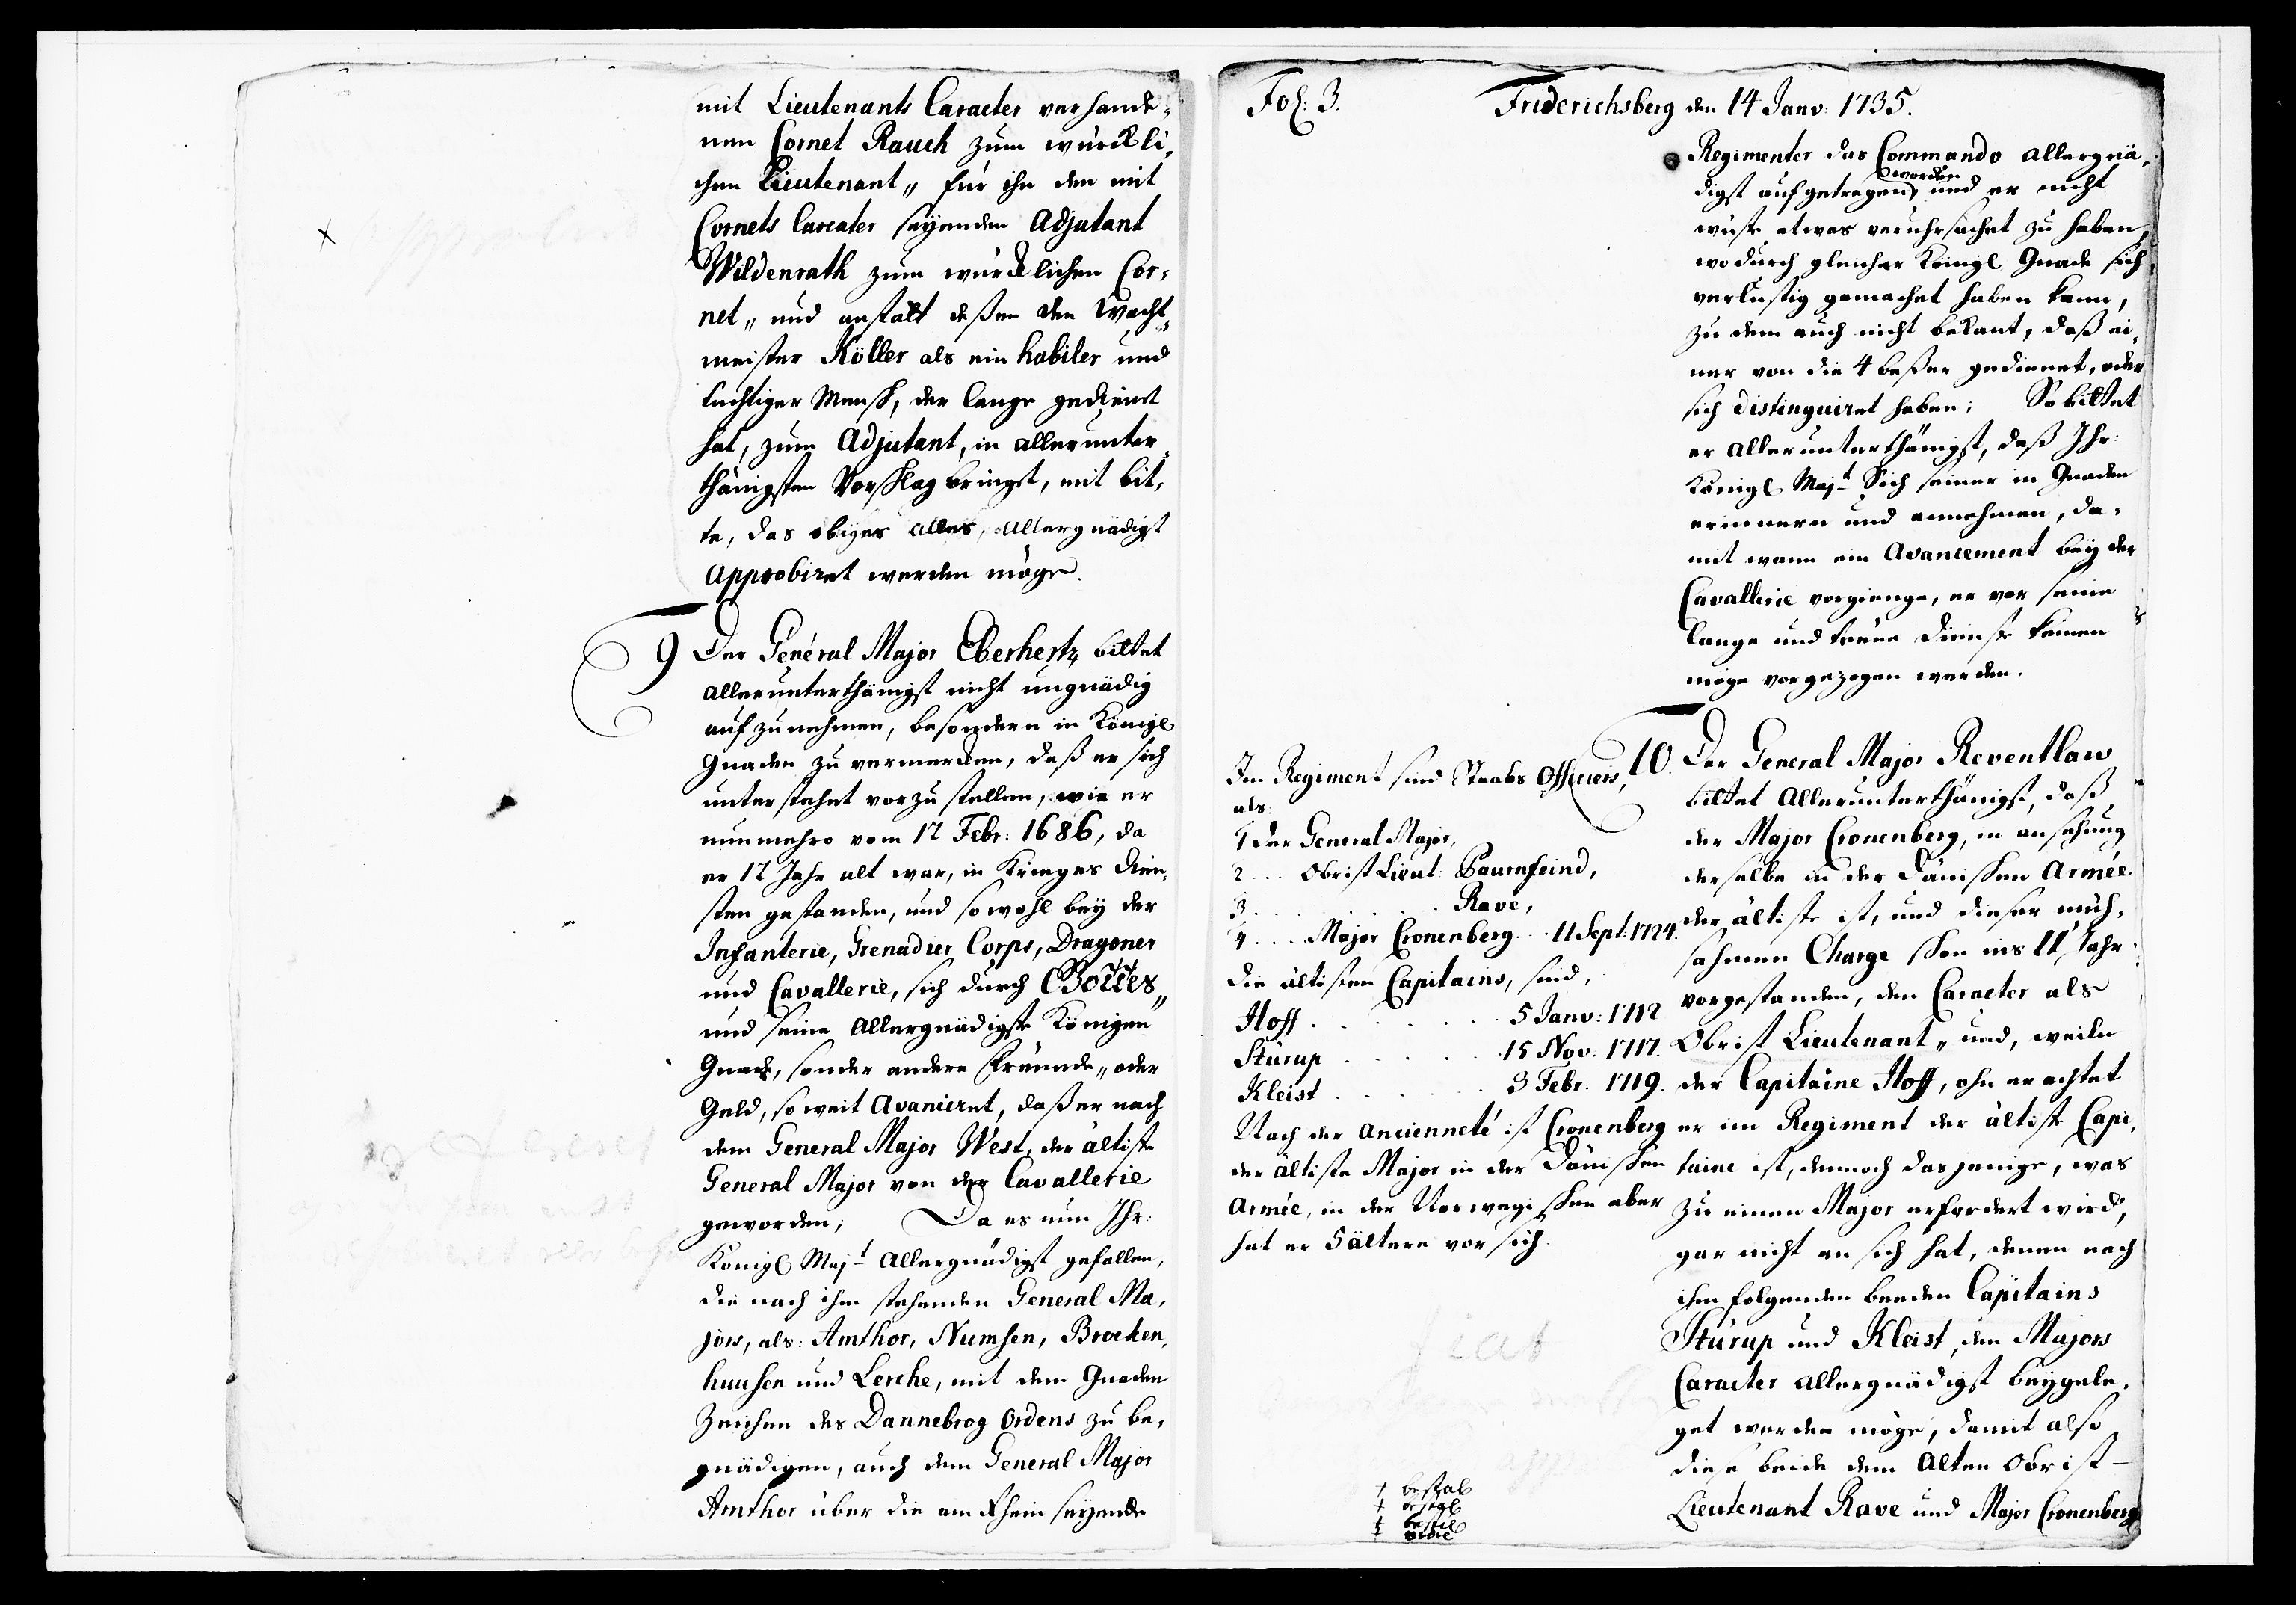 mit Lieutenants Caracter verhande-
nen Cornet Rauch zum würckli-
chen Lieutenant„ für ihn den mit
Cornets Careater seÿenden Adjutant
Wildenrath zum würcklichen Cor-
net„ und anstatt deßen den Wacht-
meister Köller als ein habiler und
tüchtiger Mensch, der lange gedienet
hat, zum Adjutant, in allerunter-
thänigsten Vorschlag bringet, mit bit-
te, das obiges alles, Allergnädigst
Approbiret werden möge.
9 Der General Major Eberhertz bittet
allerunterthänigst nicht ungnädig
aufzunehmen, besondern in Königl
Gnaden zu vermercken, daß er sich
unterstehet vorzustellen, wie er
nunmehro vom 17 Febr: 1686, da
er 17 Jahr alt war, in Krieges Dien-
sten gestanden, und sowohl beÿ der
Infanterie, Grenadier Corps, Dragoner
und Cavallerie, sich durch Gottes„
und seine Allergnädigste Königen
Gnade, sonder andere Freunde„ oder
Geld, so weit Avanciret, daß er nach
dem General Major West, der ältiste
General Major von der Cavallerie
geworden; Da es nun Ihr:
Königl Majt Allergnädigst gefallen,
die nach ihm stehenden General Ma-
jors, als: Amthor, Numsen, Brocken-
huusen und Lerche, mit dem Gnaden
Zeichen des Dannebrog Ordens zu be-
gnädigen, auch dem General Major
Amthor über die am Rhein seÿende
Fol: 3. Friderichsberg den 14 Janv: 1735.
Regimenter das Commando allergnä-
worden
digst aufgetragen, und er nicht
wuste etwas veruhrsachet zu haben,
wodurch gleicher Königl Gnade sich
verlustig gemachet haben kann,
zu dem auch nicht bekant, daß ei-
ner von die 4 beßer gedienet, oder
sich distinguiret haben; So bittet
er allerunterthänigst, daß Ihr:
Königl Majt Sich seiner in Gnaden
erinnern und annehmen, da-
mit wann ein Avancement beÿ der
Cavallerie vorgienge, er vor seine
lange und treue Dienste keinen
möge vorgezogen werden.
10. Der General Major Reventlaw
bittet Allerunterthänigst, daß
der Major Cronenberg, in ansehung
derselbe in der Dänischen Armée
der ältiste ist, und dieser müh-
sahmen Charge schon ins 11 Jahr
vorgestanden, den Caracter als
Obrist Lieutenant„ und, weiln
der Capitaine Hoff, ohn erachtet
er im Regiment der ältiste Capi-
taine ist, dennoch dasjenige, was
zu einen Major erfordert wird,
gar nicht an sich hat, denen nach
ihm folgenden beeden Capitains
Sturup und Kleist, den Majors
Caracter allergnädigst beÿgele-
get werden möge, damit also
diese beide dem Alten Obrist-
Lieutenant Rave und Major Cronenberg
Im Regiment sind Staabs Officiers,
als:
1 der General Major,
2 ... Obrist Lieut: Paurnfeind,
3 ... Rave,
4 ... Major Cronenberg ... 11 Sept: 1724.
Die ältisten Capitains, sind,
Hoff ... 5 Janv: 1712
Sturup ... 15 Nov: 1717.
Kleist ... 3 Febr. 1719.
Nach der ancienneté ist Cronenberg
der ältiste Major in der Dänischen
Armée, in der Norwegischen aber
hat er 5 ältere vor sich.